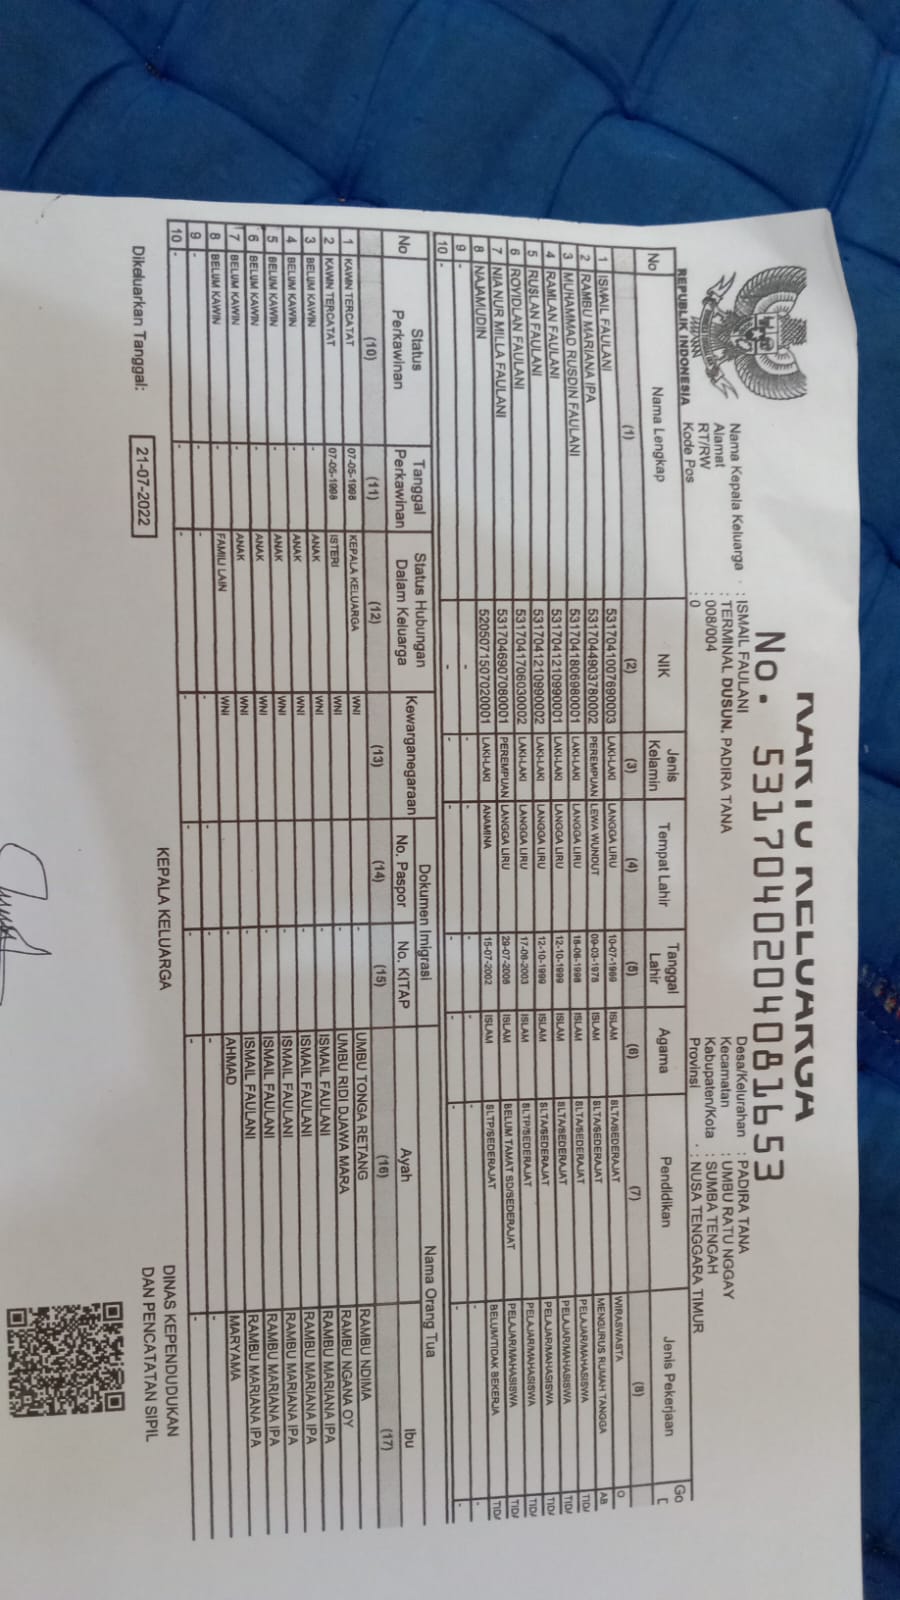 KARTU KELUARGA
No. 5317040204081653
REPUBLIK INDONESIA
Nama Kepala Keluarga : ISMAIL FAULANI
Alamat : TERMINAL DUSUN, PADIRA TANA
RT/RW : 008/004
Kode Pos : 0
Desa/Kelurahan : PADIRA TANA
Kecamatan : UMBU RATU NGGAY
Kabupaten/Kota : SUMBA TENGAH
Provinsi : NUSA TENGGARA TIMUR
No Nama Lengkap NIK Jenis Kelamin Tempat Lahir Tanggal Lahir Agama Pendidikan Jenis Pekerjaan Go
(1) (2) (3) (4) (5) (6) (7) (8)
1 ISMAIL FAULANI 5317041007690003 LAKI-LAKI LANGGA LIRU 10-07-1969 ISLAM SLTA/SEDERAJAT WIRASWASTA O
2 RAMBU MARIANA IPA 5317044903780002 PEREMPUAN LEWA WUNDUT 09-03-1978 ISLAM SLTA/SEDERAJAT MENGURUS RUMAH TANGGA AB
3 MUHAMMAD RUSDIN FAULANI 5317041806980001 LAKI-LAKI LANGGA LIRU 18-06-1998 ISLAM SLTA/SEDERAJAT PELAJAR/MAHASISWA TIDA
4 RAMLAN FAULANI 5317041210990001 LAKI-LAKI LANGGA LIRU 12-10-1999 ISLAM SLTA/SEDERAJAT PELAJAR/MAHASISWA TIDA
5 RUSLAN FAULANI 5317041210990002 LAKI-LAKI LANGGA LIRU 12-10-1999 ISLAM SLTA/SEDERAJAT PELAJAR/MAHASISWA TIDA
6 ROVIDLAN FAULANI 5317041706030002 LAKI-LAKI LANGGA LIRU 17-06-2003 ISLAM SLTP/SEDERAJAT PELAJAR/MAHASISWA TIDA
7 NIA NUR MILLA FAULANI 5317046907080001 PEREMPUAN LANGGA LIRU 29-07-2008 ISLAM BELUM TAMAT SD/SEDERAJAT PELAJAR/MAHASISWA TIDA
8 NAJAMUDIN 5205071507020001 LAKI-LAKI ANAMINA 15-07-2002 ISLAM SLTP/SEDERAJAT BELUM/TIDAK BEKERJA TIDA
9 - - - - - - - - -
10 - - - - - - - - -
No Status Perkawinan Tanggal Perkawinan Status Hubungan Dalam Keluarga Kewarganegaraan Dokumen Imigrasi Nama Orang Tua
No. Paspor No. KITAP Ayah Ibu
(10) (11) (12) (13) (14) (15) (16) (17)
1 KAWIN TERCATAT 07-05-1998 KEPALA KELUARGA WNI - - UMBU TONGA RETANG RAMBU NDIMA
2 KAWIN TERCATAT 07-05-1998 ISTERI WNI - - UMBU RIDI DJAWA MARA RAMBU NGANA OY
3 BELUM KAWIN - ANAK WNI - - ISMAIL FAULANI RAMBU MARIANA IPA
4 BELUM KAWIN - ANAK WNI - - ISMAIL FAULANI RAMBU MARIANA IPA
5 BELUM KAWIN - ANAK WNI - - ISMAIL FAULANI RAMBU MARIANA IPA
6 BELUM KAWIN - ANAK WNI - - ISMAIL FAULANI RAMBU MARIANA IPA
7 BELUM KAWIN - ANAK WNI - - ISMAIL FAULANI RAMBU MARIANA IPA
8 BELUM KAWIN - FAMILI LAIN WNI - - AHMAD MARYAMA
9 - - - - - - - -
10 - - - - - - - -
Dikeluarkan Tanggal: 21-07-2022
KEPALA KELUARGA
DINAS KEPENDUDUKAN
DAN PENCATATAN SIPIL